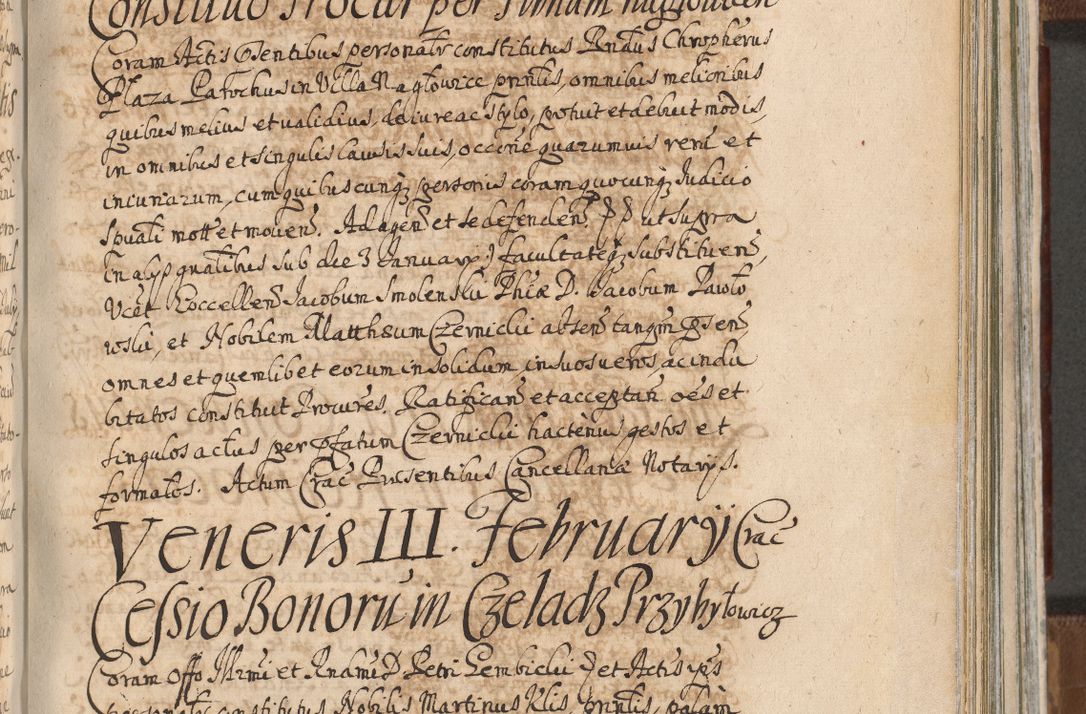 Constituo Procur per Primum Nagłowicen
Coram Actis Psentibus personalr constitutus Rndus Chropherus
Plaza Parochus in Villa Nagłowice pnnlis, omnibus melioribus
quibus melius et validius, de iure ac stylo, potuit et debuit modis,
in omnibus et singulis causis suis, occone quarumuis rerũ et
iniuriarum, cum quibuscunq; personis coram quocunq; Judicio
Spuali motis et mouen. Ad agen et se defenden. ut supra
in alys qualibus sub die 3 January facultateq; substituen,
Vcet Excellen Jacobum Smolenski Phiæ D. Jacobum Pawło
wski, et Nobilem Matthæum Czernicki absen tanqm Psen,
omnes et quemlibet eorum in solidum, in suos veros, ac indu
bitatos constituit Procures. Ratifican et acceptan oes et
singulos actus per Pfatum Czernicki hactenus gestos et
formatos. Actum Crac Præsentibus Cancellariæ Notarys.
Veneris III. February Crac
Cessio Bonorũ in Czeladz Przybyłowicz
Coram Offo Illrmi et Rndmi D Petri Gembicki et Actis ips
personalr constitutus Nobilis Martinus Klis, pnnlis, palam